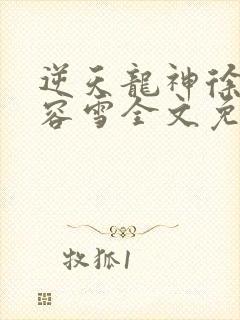 逆天龍神徐
容雪全文免
牧狐1